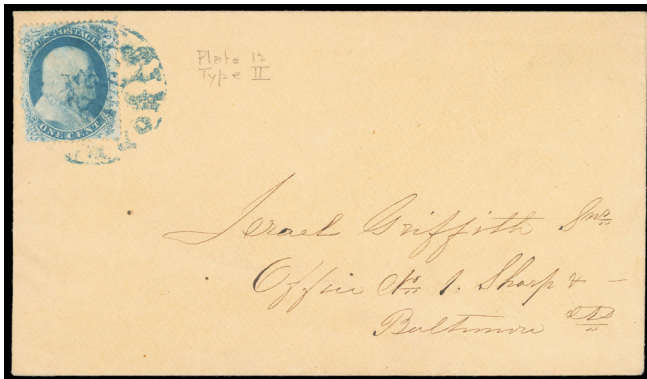 U.S. POSTAGE
ONE CENT
Plate 12
Type II
Israel Griffith Snr
Office No 1. Sharp &
Baltimore